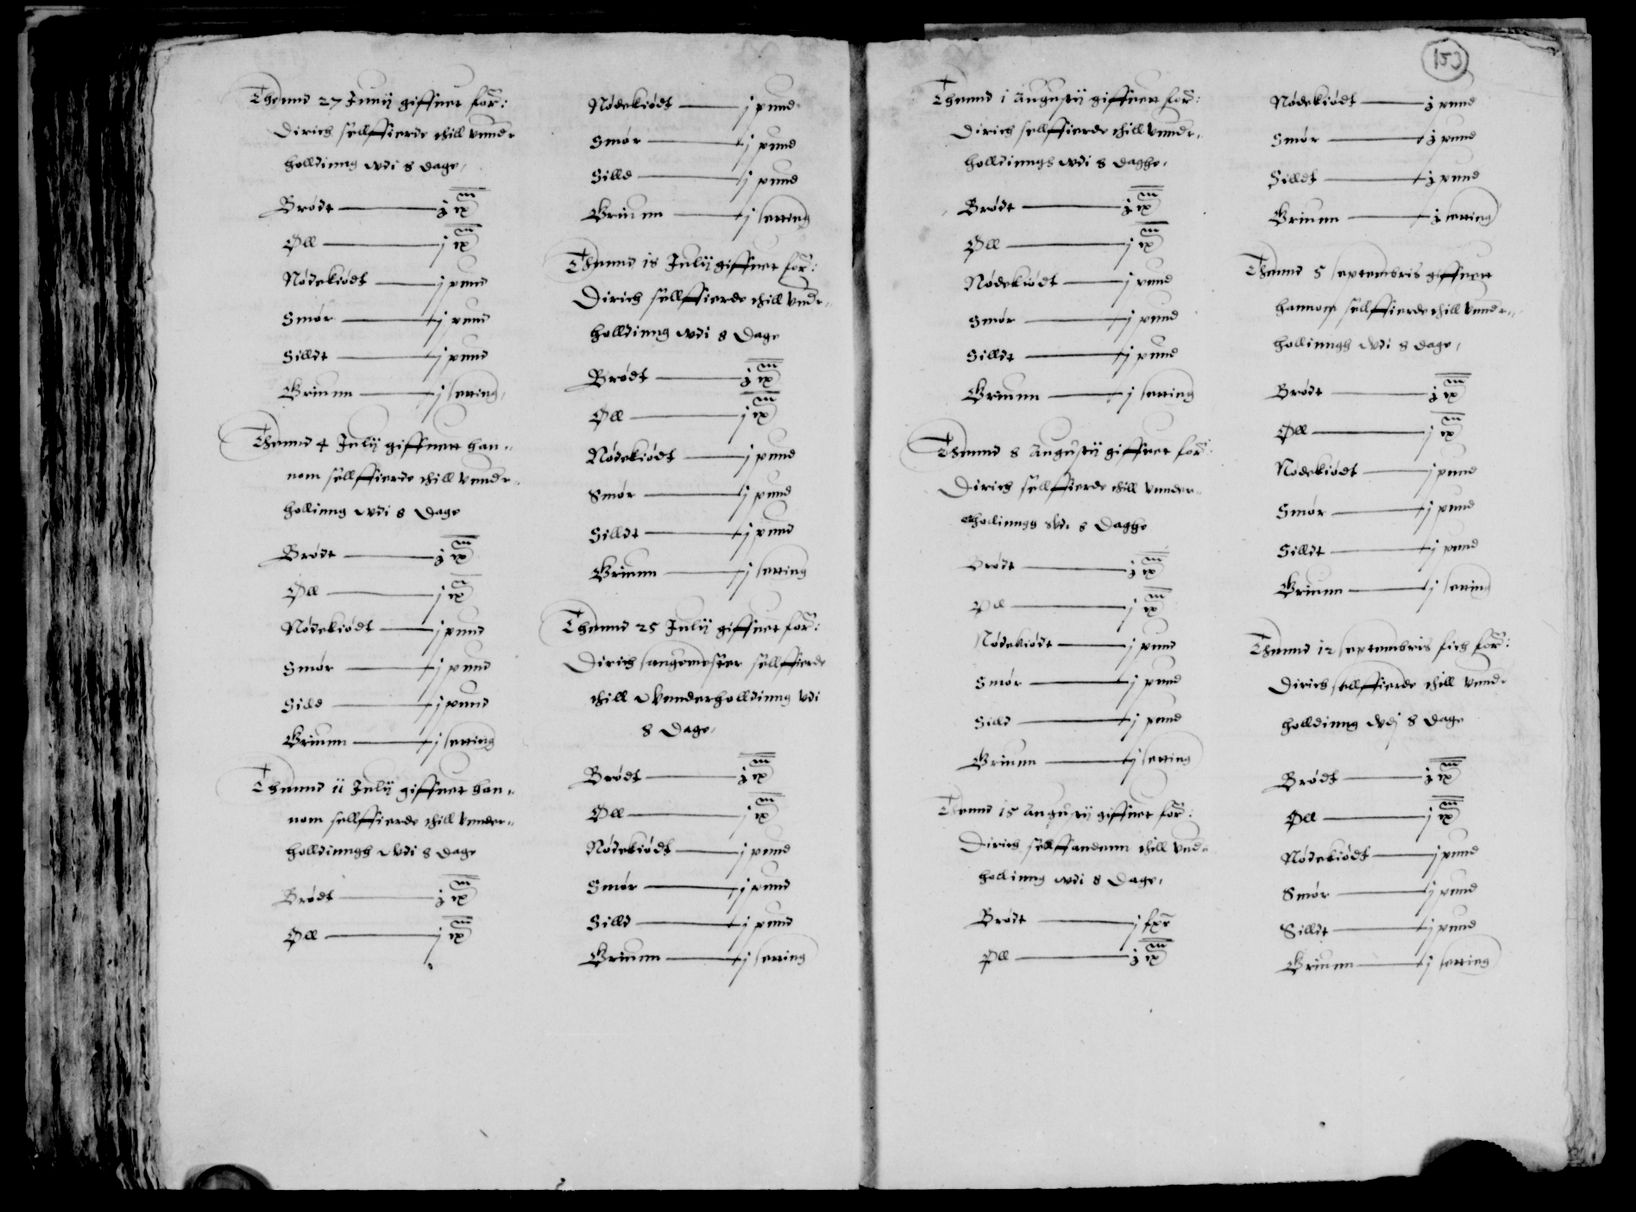 Thennd 27 Junij giffuet for:
Dirich sellffierde thill unnder
holldinng udi 8 dage,
Brødt — j ix m
Øll — j ix m
Nødekiødt — j pund
Smør — j pund
Silldt — j pund
Griunn — j setting
Thennd 4 Julij giffuett han-
nom sellffierde thill unnder-
hollinng udi 8 dage
Brødt — j ix m
Øll — j ix m
Nødekiødt — j pund
Smør — j pund
Silld — j pund
Griunn — j setting
Thennd 11 Julij giffuet han-
nom sellffierde thill unnder-
holldinngh udi 8 dage
Brødt — j ix m
Øll — j ix m
Nødekiødt — j pund
Smør — j pund
Silld — j pund
Griunn — j setting
Thennd 18 Julij giffuet for:
Dirich sellffierde thill under-
holldinng udi 8 dage
Brødt — j ix m
Øll — j ix m
Nødekiødt — j pund
Smør — j pund
Silldt — j pund
Griunn — j setting
Thennd 25 Julij giffuet for:
Dirich sangemester sellffierde
thill unnderholldinng udi
8 dage,
Brødt — j ix m
Øll — j ix m
Nødekiødt — j pund
Smør — j pund
Silld — j pund
Griunn — j setting
153
Thennd 1 Augustij giffuett for:
Dirich sellffierde thill unnder-
holldinngh udi 8 daghe,
Brødt — j ix m
Øll — j ix m
Nødekiødt — j pund
Smør — j pund
Silldt — j pund
Griunn — j setting
Thennd 8 Augustij giffuet for:
Dirich sellffierde thill unnder-
hollinngh udi 8 daghe
Brødt — j ix m
Øll — j ix m
Nødekiødt — j pund
Smør — j pund
Silld — j pund
Griunn — j setting
Thennd 15 Augustij giffuet for:
Dirich sellffandenn thill und-
hollinng udi 8 dage,
Brødt — j
Øll — j ix m
Nødekiødt — j pund
Smør — j pund
Silldt — j pund
Griunn — j setting
Thennd 5 septembris giffuett
hannom sellffierde thill unnder-
hollinngh udi 8 dage,
Brødt — j ix m
Øll — j ix m
Nødekiødt — j pund
Smør — j pund
Silldt — j pund
Griunn — j setting
Thennd 12 septembris fich for:
Dirich sellffierde thill unnder
holldinng udj 8 dage
Brødt — j ix m
Øll — j ix m
Nødekiødt — j pund
Smør — j pund
Silldt — j pund
Griunn — j setting